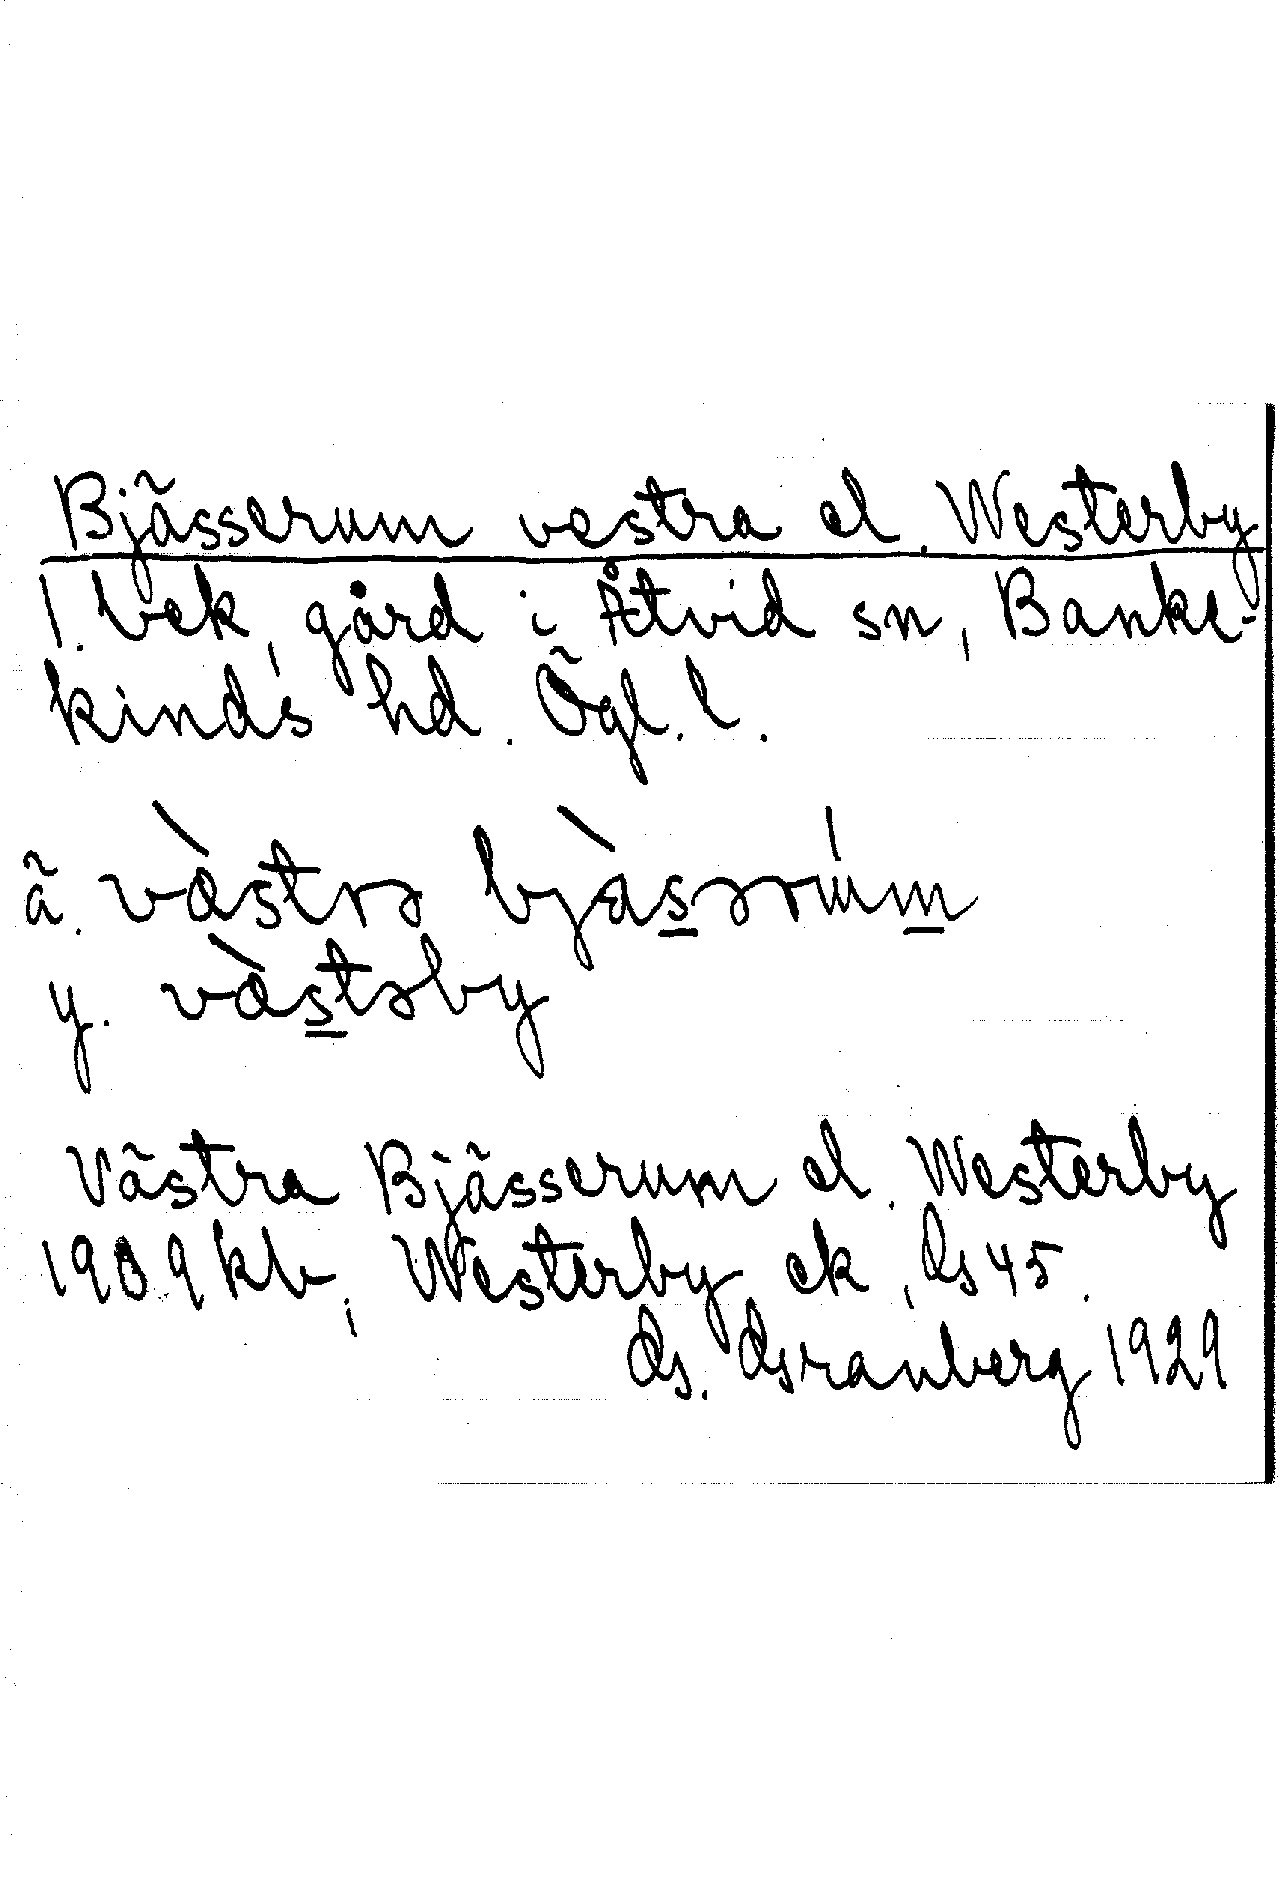 Bjässerum vestra el. Westerby
1. bek, gård i Åtvid sn, Banke-
kinds hd. Ögl. l.
ä. vàstrə bjàsərúm
y. vàstəby
Västra Bjässerum el. Westerby
1909 kb, Westerby ek, Gs 45.
Gs. Granberg 1929